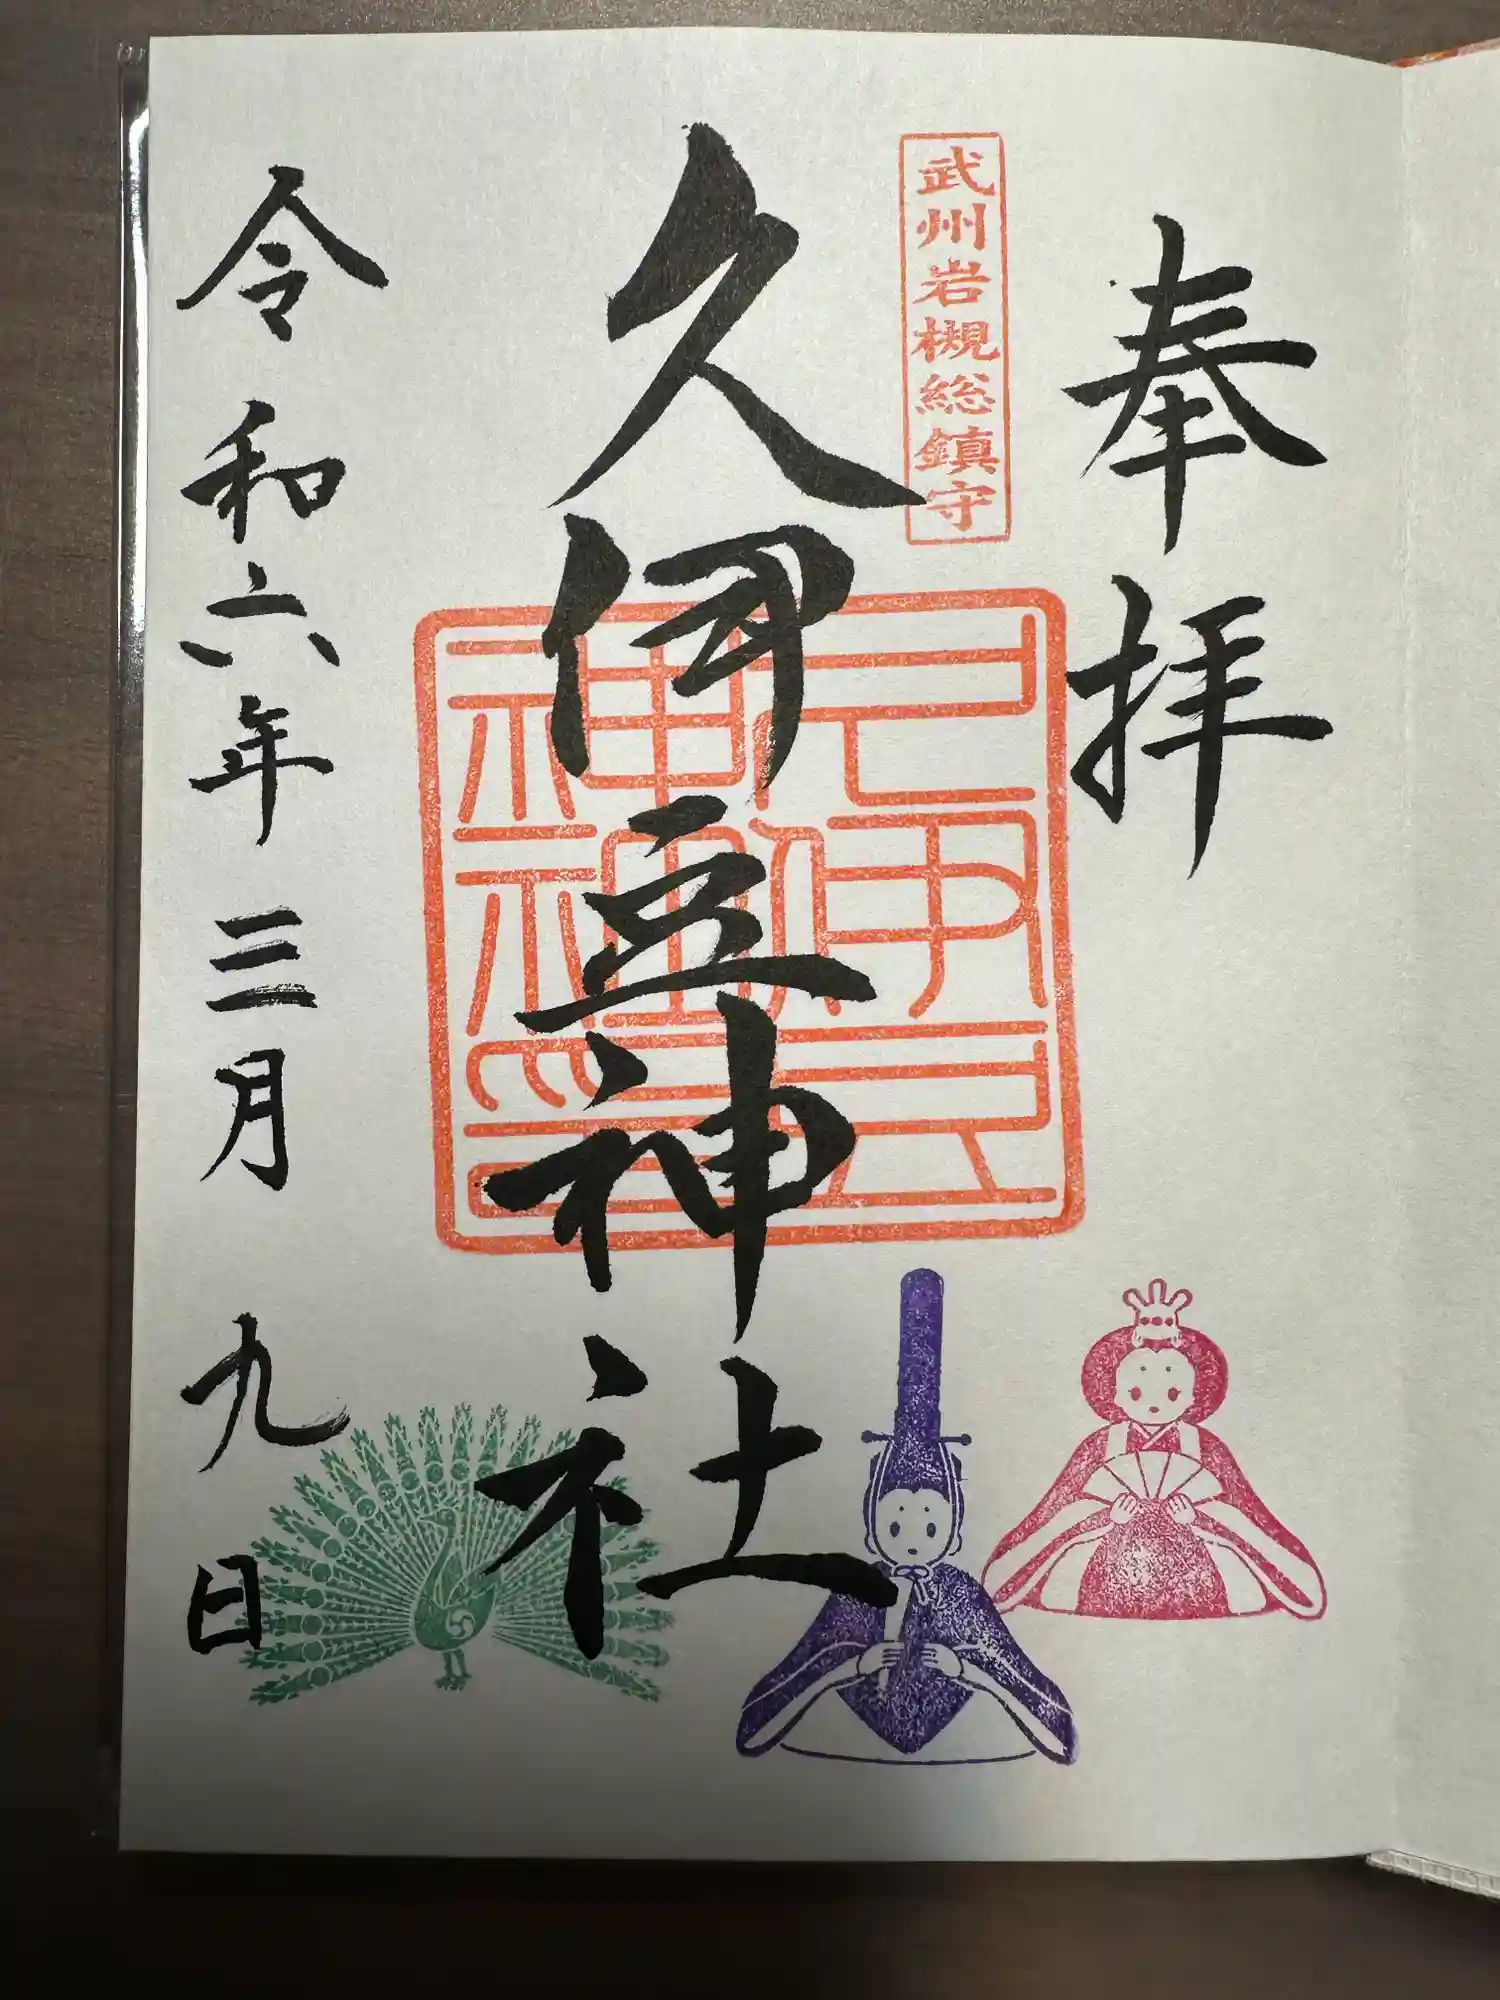 奉拝
武州岩槻総鎮守
久伊豆神社
久伊豆神社神印
令和六年三月九日